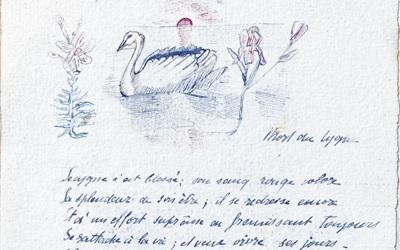 Mort du Cygne
Le cygne s'est blessé ; son sang rouge colore
La splendeur de son être ; il se redresse encore
Et d'un effort suprême en frémissant toujours
Se rattache à la vie ; il veut vivre ses jours